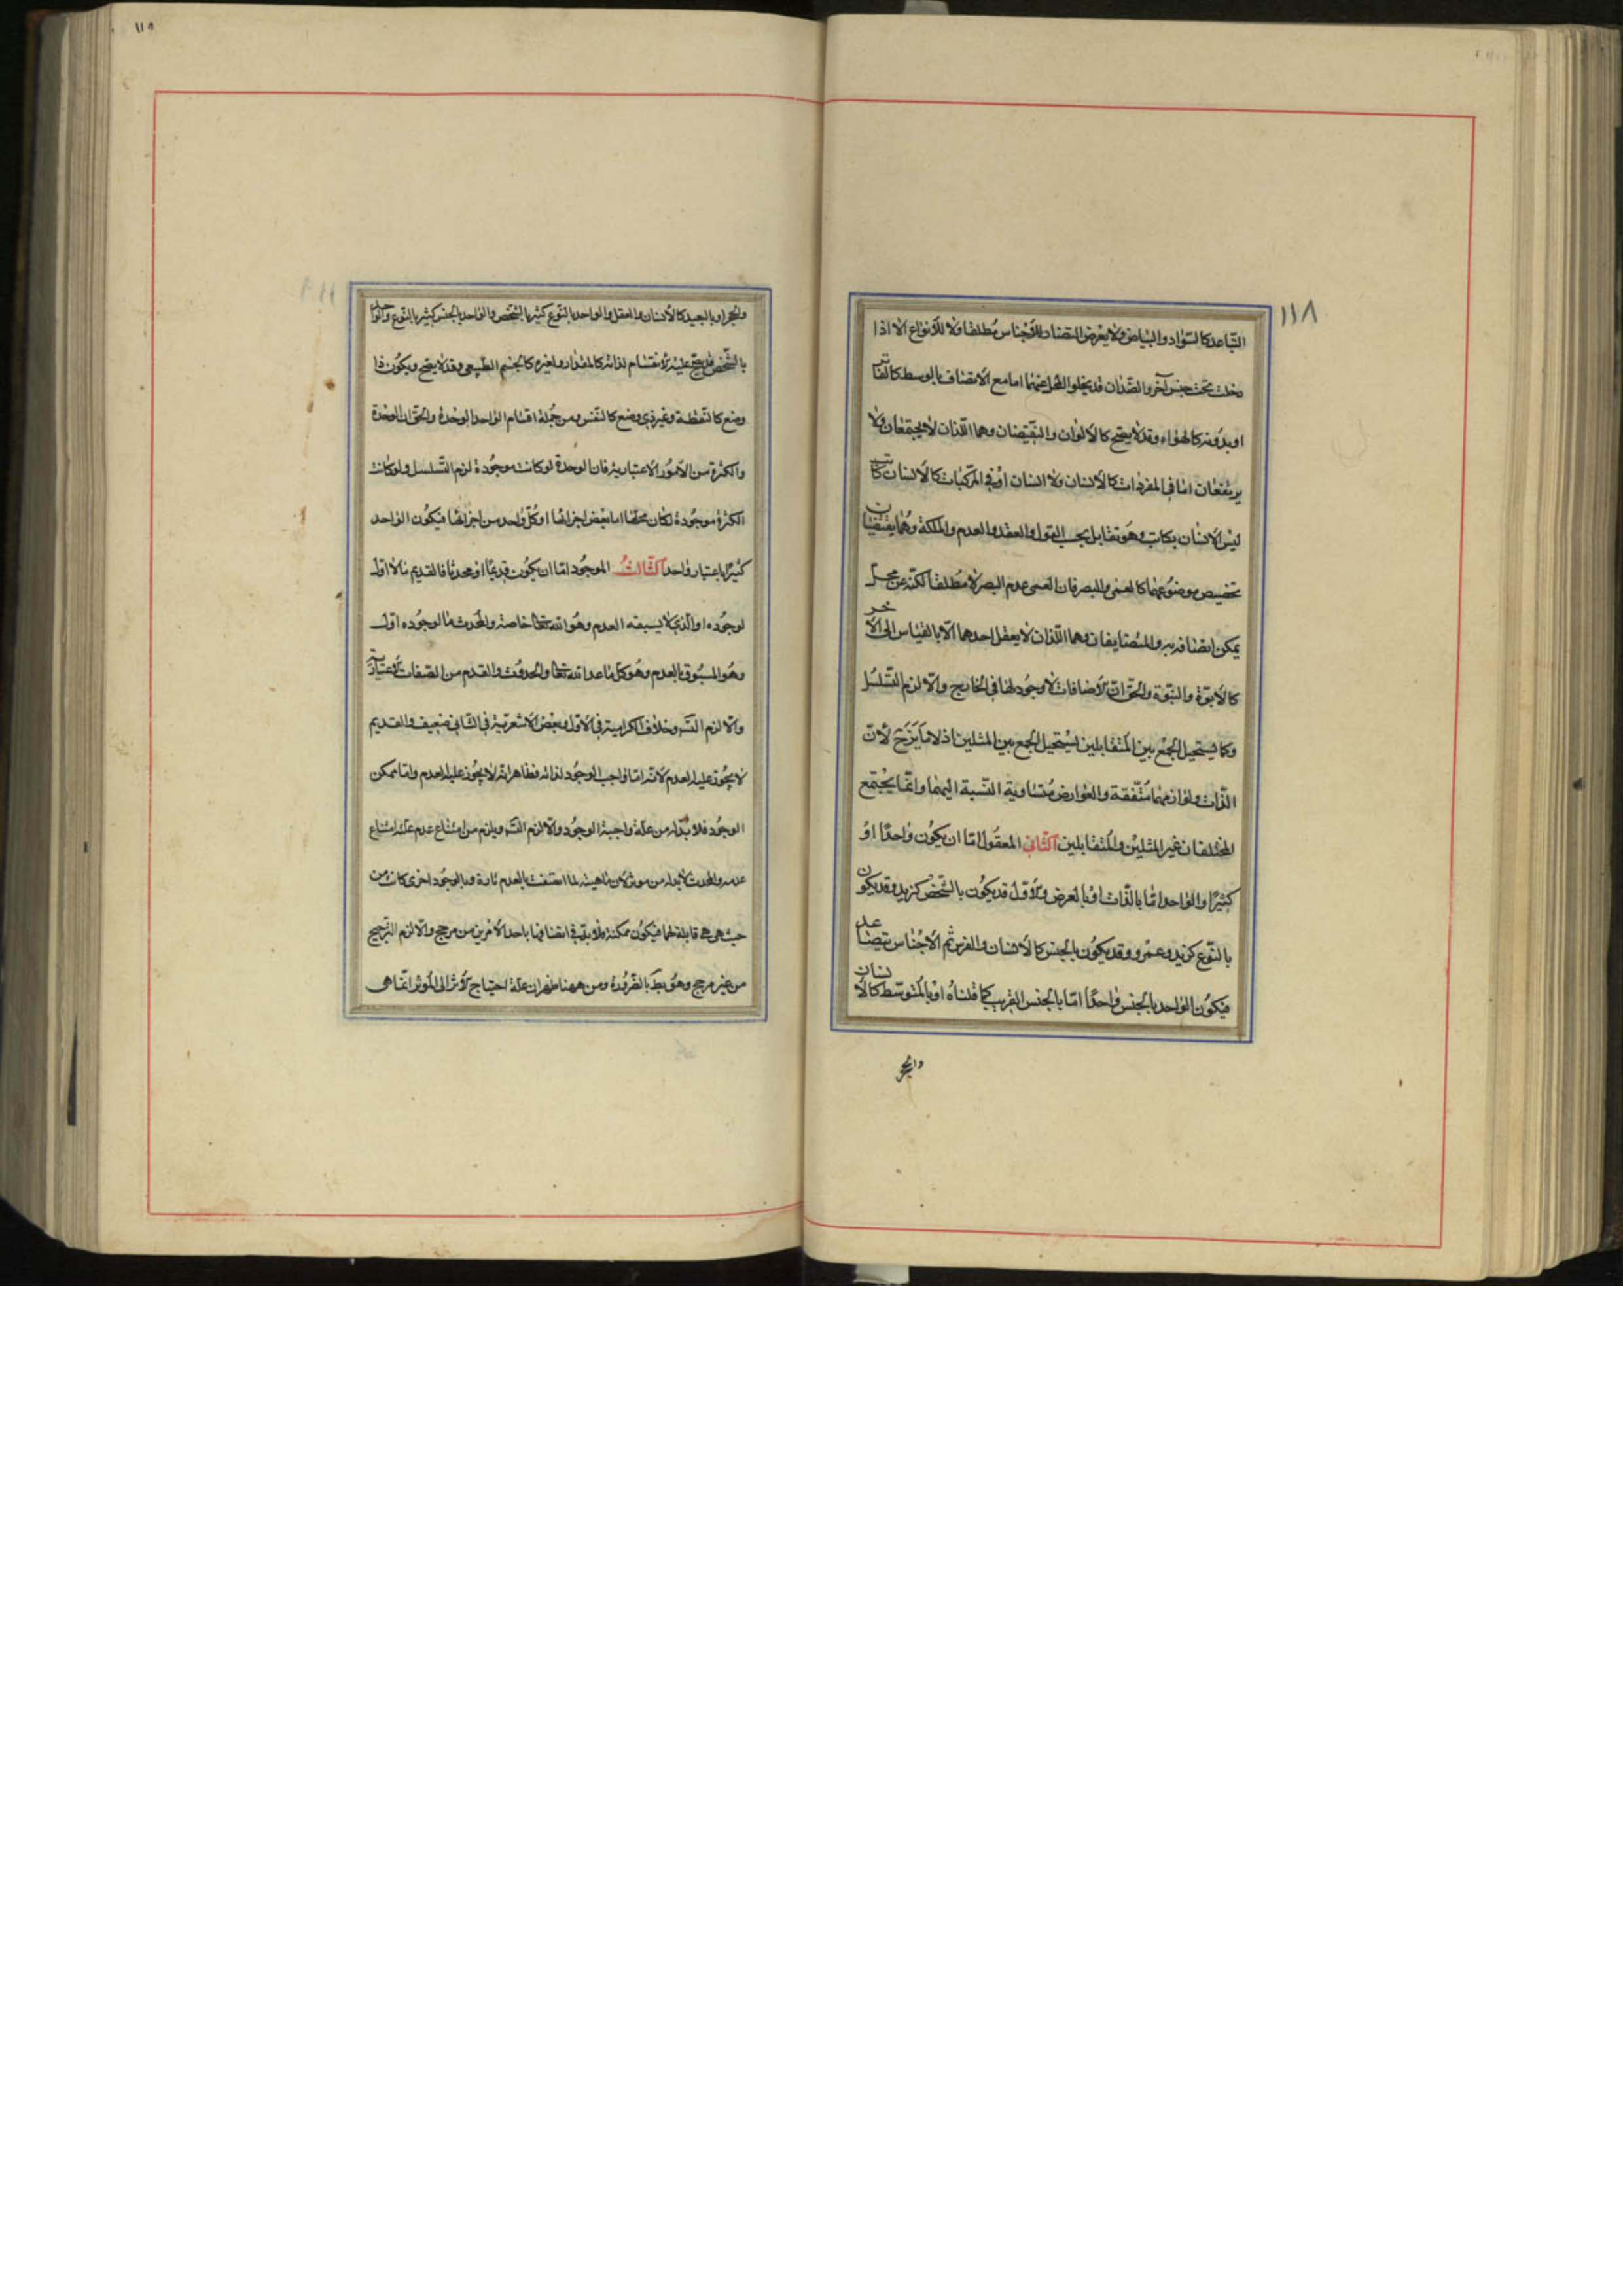 ١١٨
التباعد كالسواد والبياض ولا يعرض التضاد للأجناس مطلقا ولا للأنواع الا اذا
دخلت تحت جنس آخر والضدان قد يخلو المحل عنهما اما مع الاتصاف بالوسط كالفاتر
او بدونه كالهواء وقد لا يصح كالألوان والنقيضان وهما اللذان لا يجتمعان ولا
يرتفعان اما في المفردات كالانسان ولا انسان او في المركبات كالانسان كاتب
ليس الانسان بكاتب وهو تقابل بحسب القول والعقد والعدم والملكة وهما يقتضيان
تخصيص موضوعهما كالعمى والبصر فان العمى عدم البصر لا مطلقا لكنه عن محل
يمكن اتصافه به والمتضايفان وهما اللذان لا يعقل احدهما الا بالقياس الى الآخر
كالأبوة والبنوة والحق ان الاضافات لا وجود لها في الخارج والا لزم التسلسل
وكما يستحيل الجمع بين المتقابلين يستحيل الجمع بين المثلين اذ لا مايز ح لأن
الذات ولوازمها متفقة والعوارض متساوية النسبة اليهما وانما يجتمع
المختلفان غير المثلين والمتقابلين الثاني المعقول اما ان يكون واحدا او
كثيرا والواحد اما بالذات او بالعرض والأول قد يكون بالشخص كزيد وقد يكون
بالنوع كزيد وعمرو وقد يكون بالجنس كالانسان والفرس ثم الأجناس تتصاعد
فيكون الواحد بالجنس واحدا اما بالجنس القريب كما قلناه او بالمتوسط كالانسان
والحجر
١١٨
والحجر او بالبعيد كالانسان والعقل والواحد بالنوع كثير بالشخص والواحد بالجنس كثير بالنوع والواحد
بالشخص قد يصح عليه الانقسام لذاته كالمقدار ولغيره كالجسم الطبيعي وقد لا يصح ويكون ذا
وضع كالنقطة وغير ذي وضع كالنفس ومن جملة اقسام الواحد الوحدة والحق ان الوحدة
والكثرة من الأمور الاعتبارية فان الوحدة لو كانت موجودة لزم التسلسل ولو كانت
الكثرة موجودة لكان محلها اما بعض اجزائها او كل واحد من اجزائها فيكون الواحد
كثيرا باعتبار واحد الثالث الموجود اما ان يكون قديما او محدثا فالقديم ما لا اول
لوجوده او الذي لا يسبقه العدم وهو الله تعالى خاصة والمحدث ما لوجوده اول
وهو المسبوق بالعدم وهو كل ما عدا الله تعالى والحدوث والقدم من الصفات الاعتبارية
والا لزم التس وخلاف الكرامية في الاول وبعض الاشعرية في الثاني ضعيف والقديم
لا يجوز عليه العدم لانه اما واجب الوجود لذاته فظاهر انه لا يجوز عليه العدم واما ممكن
الوجود فلا بد له من علة واجبة الوجود والا لزم التس ويلزم من امتناع عدم علته امتناع
عدمه والمحدث لا بد له من موثر لان ماهيته لما اتصفت بالعدم تارة وبالوجود اخرى كانت من
حيث هي هي قابلة لهما فيكون ممكنة فلا بد في اتصافها باحد الأمرين من مرجح والا لزم الترجيح
من غير مرجح وهو بط بالضرورة ومن ههنا ظهر ان علة احتياج الأثر الى المؤثر انما هي